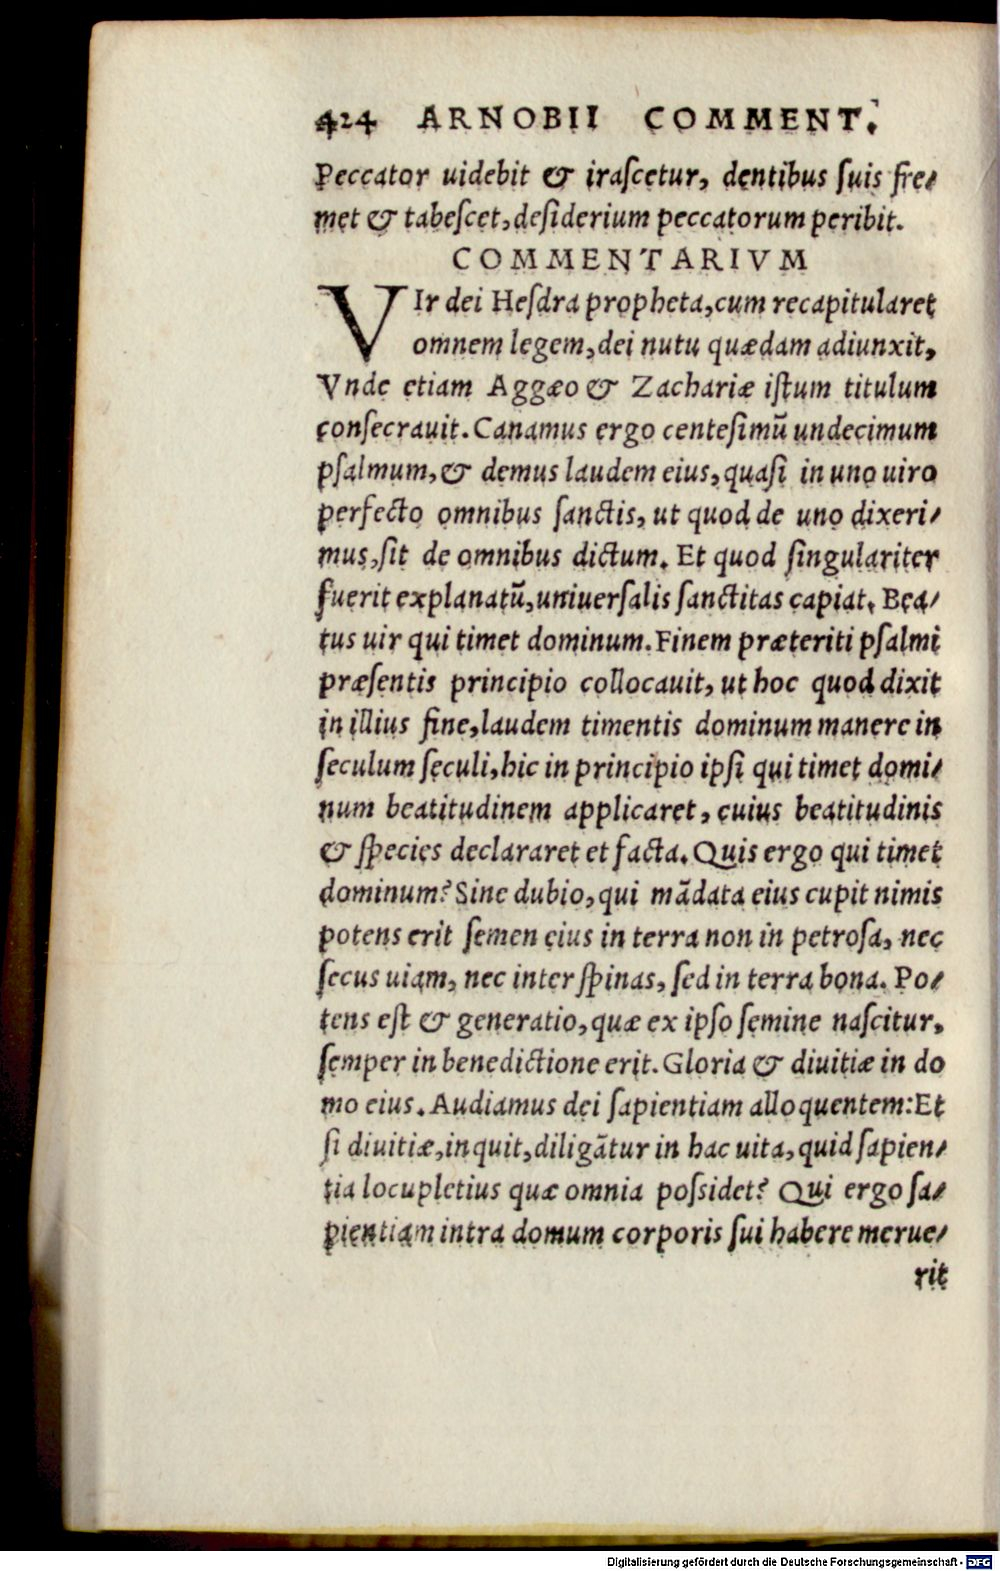 424 ARNOBII COMMENT.
Peccator uidebit & irascetur, dentibus suis fre-
met & tabescet, desiderium peccatorum peribit.
COMMENTARIVM
VIr dei Hesdra propheta, cum recapitularet
omnem legem, dei nutu quædam adiunxit,
Vnde etiam Aggæo & Zachariæ istum titulum
consecrauit. Canamus ergo centesimũ undecimum
psalmum, & demus laudem eius, quasi in uno uiro
perfecto omnibus sanctis, ut quod de uno dixeri-
mus, sit de omnibus dictum. Et quod singulariter
fuerit explanatũ, uniuersalis sanctitas capiat. Bea-
tus uir qui timet dominum. Finem præteriti psalmi
præsentis principio collocauit, ut hoc quod dixit
in illius fine, laudem timentis dominum manere in
seculum seculi, hic in principio ipsi qui timet domi-
num beatitudinem applicaret, cuius beatitudinis
& species declararet et facta. Quis ergo qui timet
dominum? Sine dubio, qui mãdata eius cupit nimis
potens erit semen eius in terra non in petrosa, nec
secus uiam, nec inter spinas, sed in terra bona. Po-
tens est & generatio, quæ ex ipso semine nascitur,
semper in benedictione erit. Gloria & diuitiæ in do
mo eius. Audiamus dei sapientiam alloquentem: Et
si diuitiæ, inquit, diligãtur in hac uita, quid sapien-
tia locupletius quæ omnia possidet? Qui ergo sa-
pientiam intra domum corporis sui habere merue-
rit
Digitalisierung gefördert durch die Deutsche Forschungsgemeinschaft - DFG